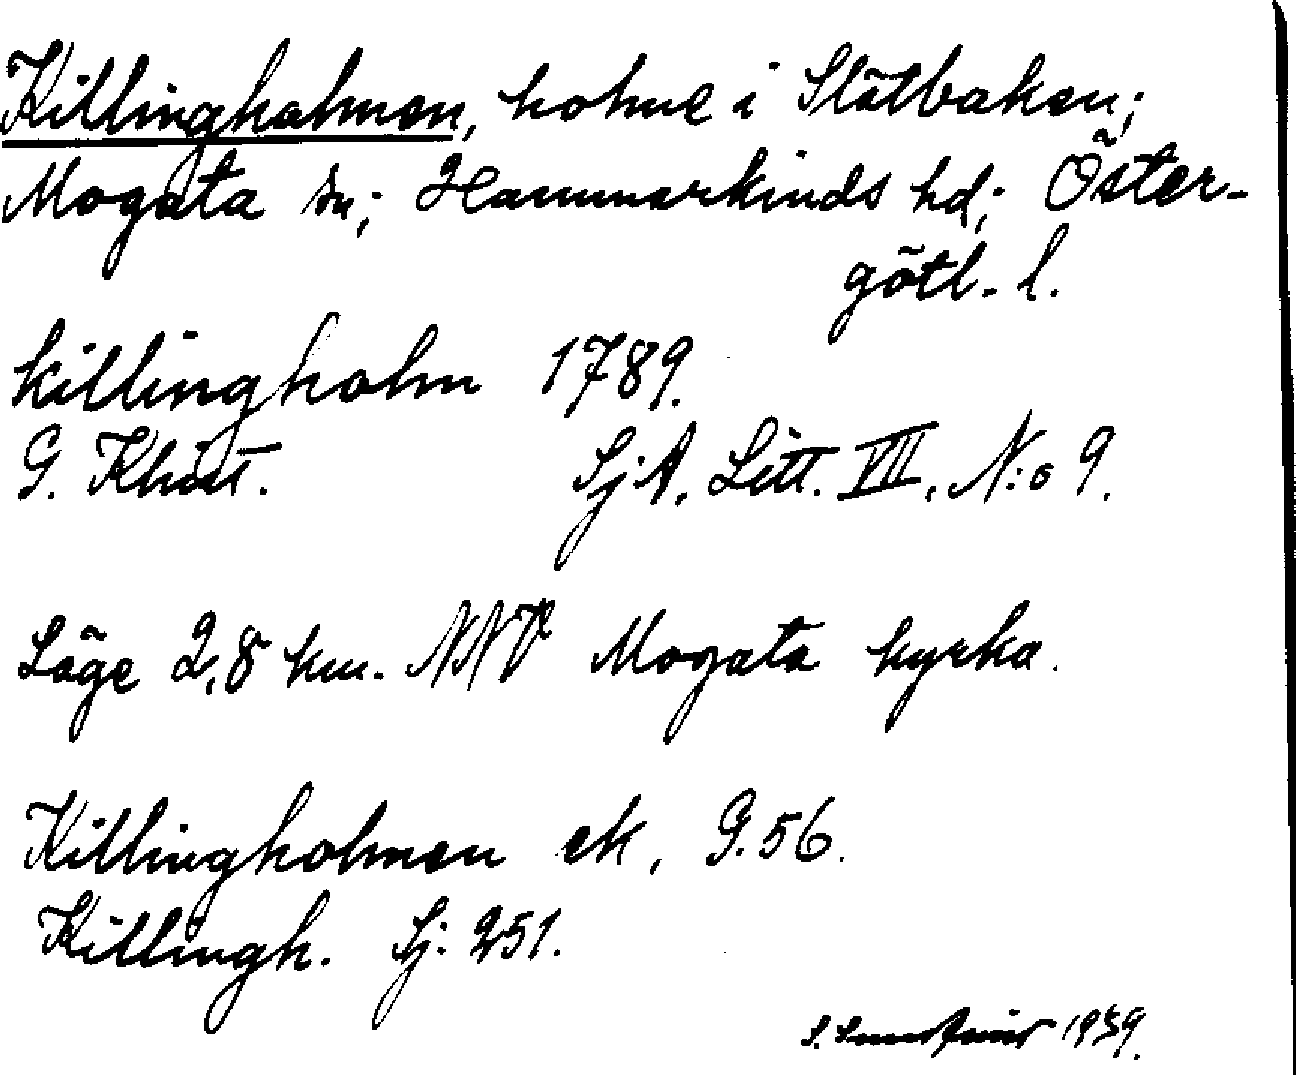 Killingholmen, holme i Slätbaken;
Mogata sn; Hammarkinds hd; Öster-
götl. l.
Killingholm 1789.
G. Klint. SjA, Litt. VII, N:o 9.
Läge 2,8 km. NNV Mogata kyrka.
Killingholmen ek, G.56.
Killingh. Sj. 251.
1939.